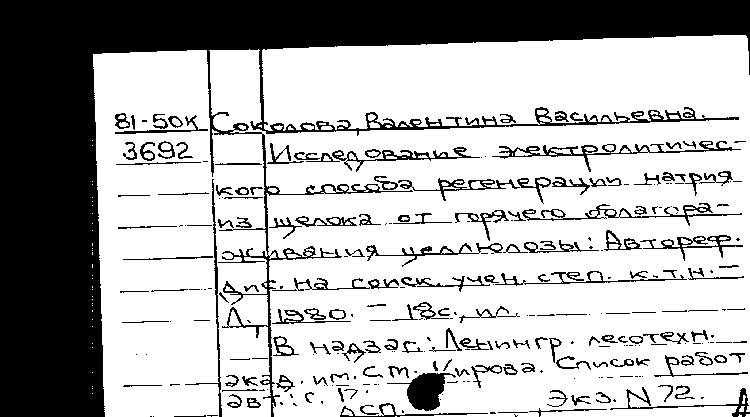 81-50к Соколова, Валентина Васильевна.
3692 Исследование электролитичес-
кого способа регенерации натрия
из щелока от горячего облагора-
живания целлюлозы: Автореф.
дис. на соиск. учен. степ. к.т.н. -
Л., 1980. - 18с., ил.
В надзаг.: Ленингр. лесотехн.
акад. им. С.М. Кирова. Список работ
авт.: с.
ДСП. Экз. N 72.